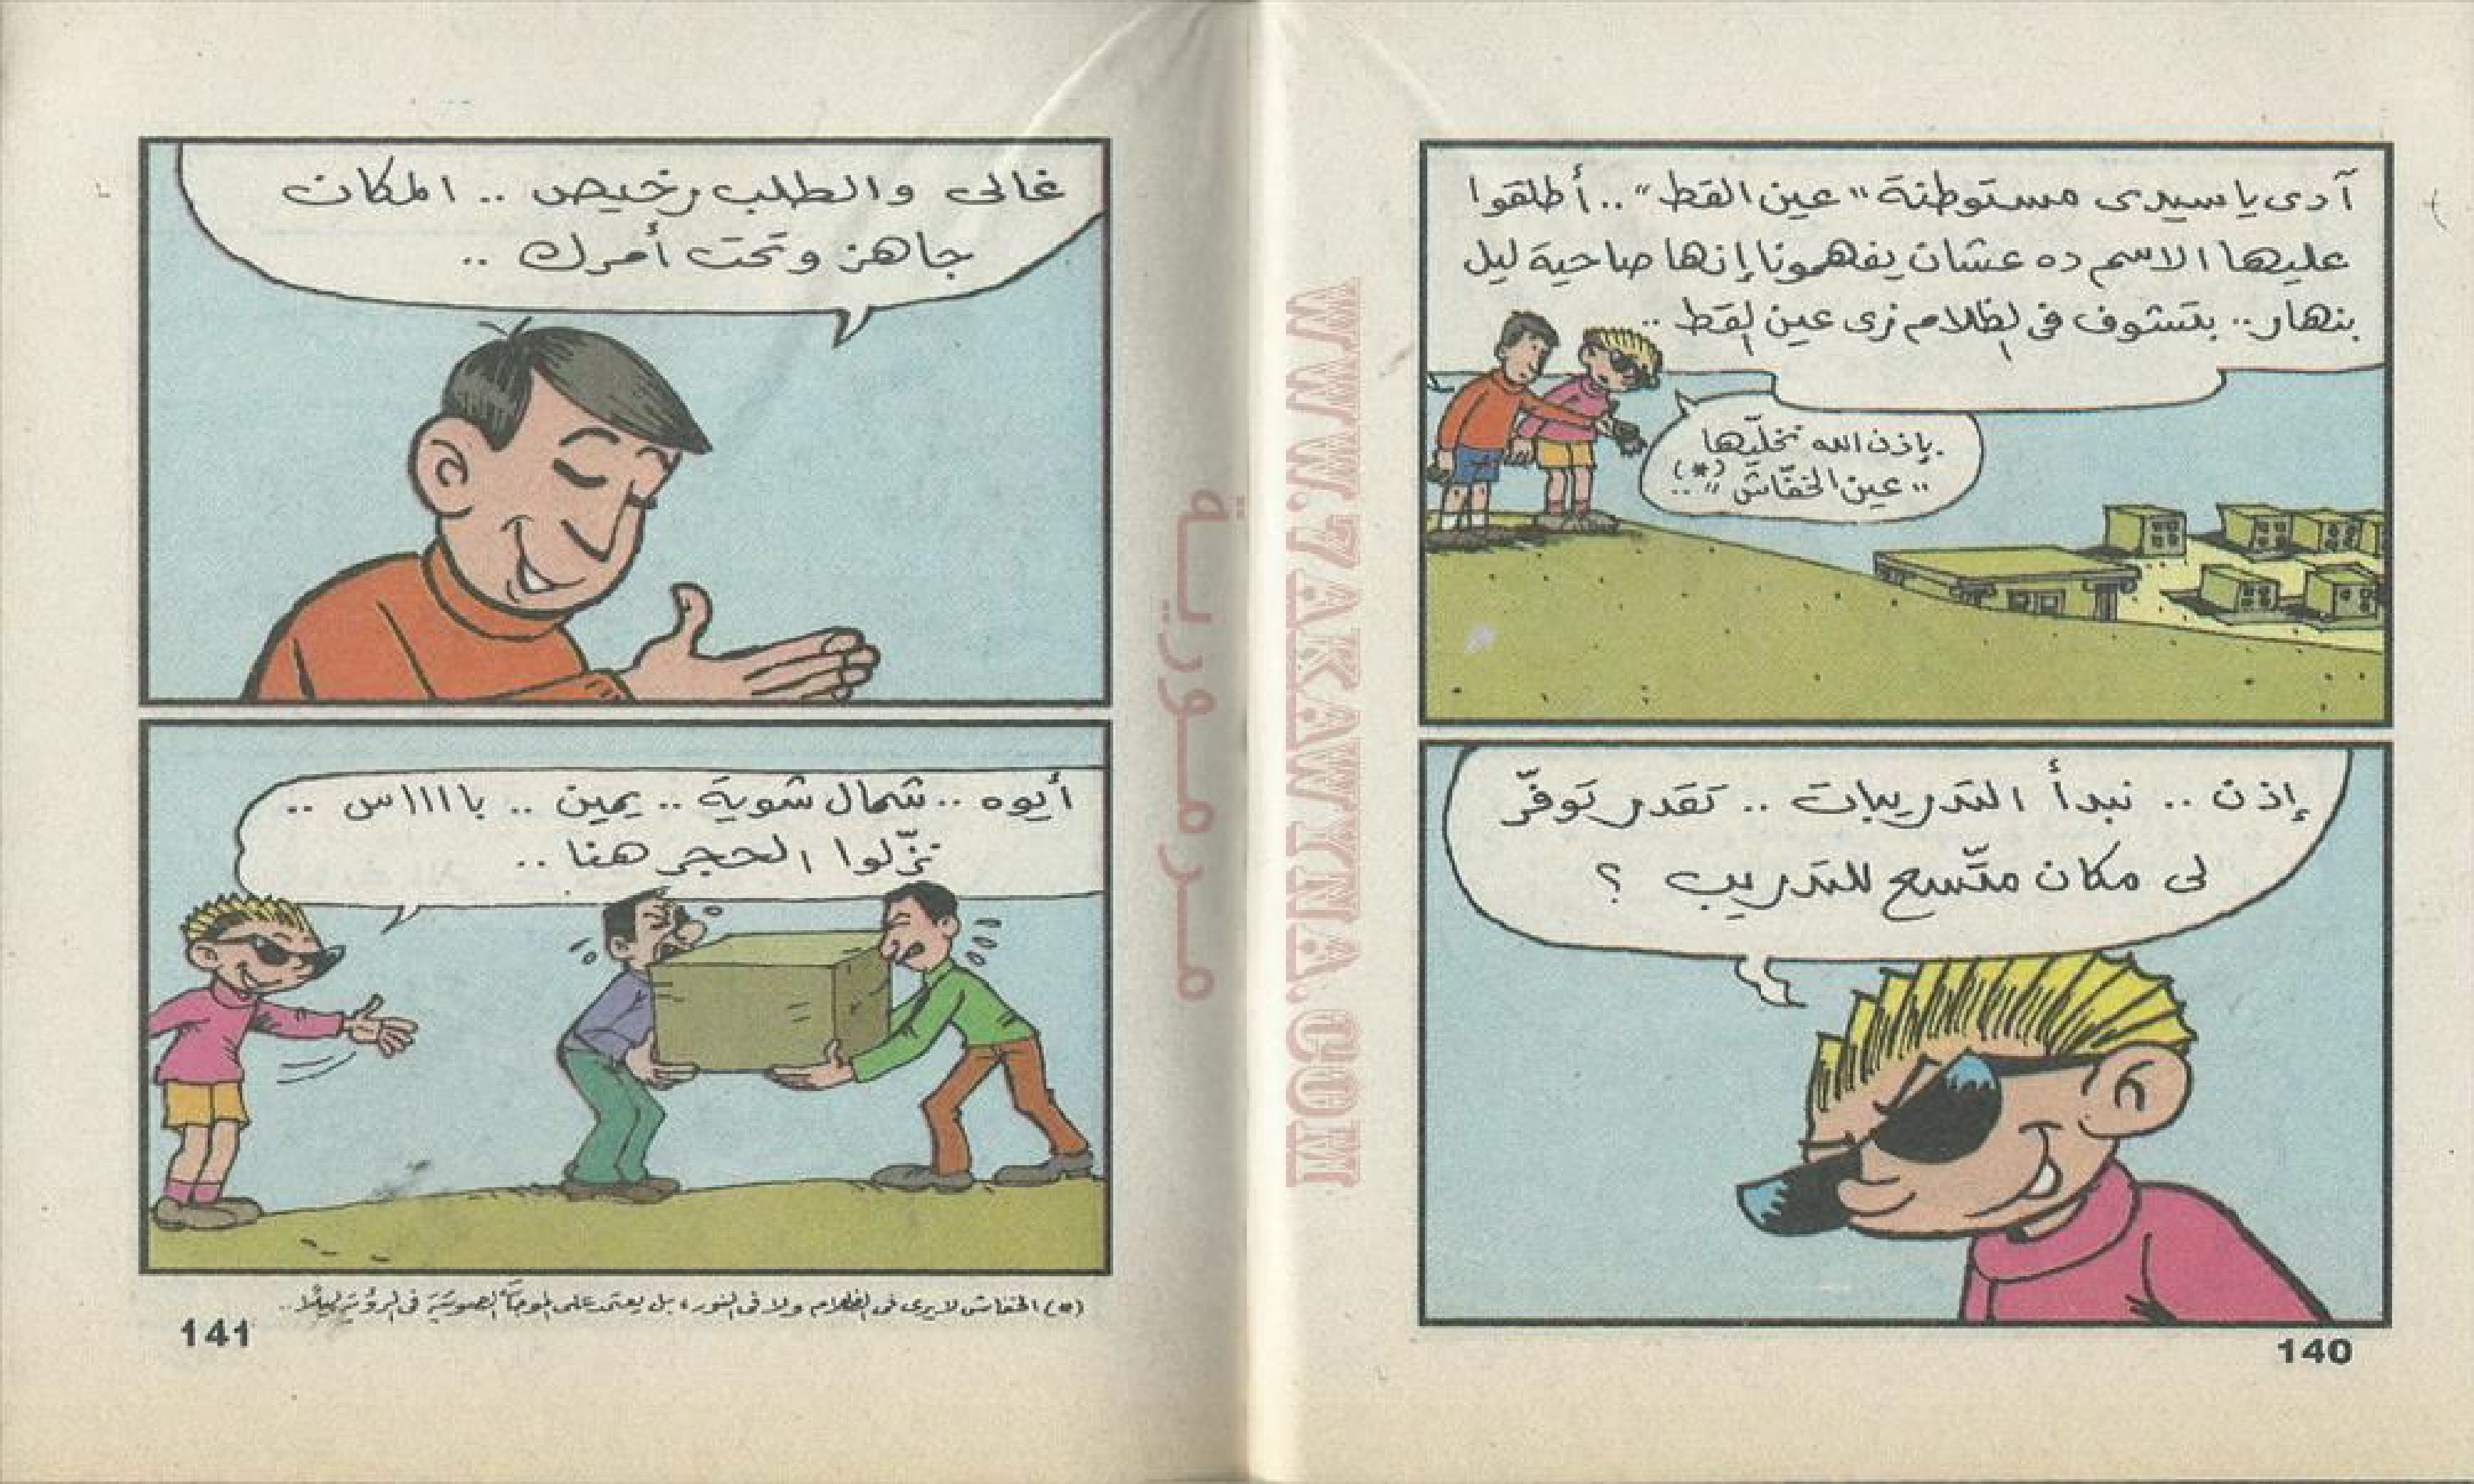 آدى يا سيدى مستوطنة "عين القط".. أطلقوا
عليها الاسم ده عشان يفهمونا إنها صاحية ليل
بنهار.. بتشوف فى الظلام زى عين القط..
بإذن الله نخلّيها
"عين الخفّاش"(*)..
إذن .. نبدأ التدريبات .. تقدر توفّر
لى مكان متّسع للتدريب ؟
140
غالى والطلب رخيص .. المكان
جاهز وتحت أمرك ..
أيوه .. شمال شوية .. يمين .. بااااس ..
نزّلوا الحجر هنا ..
(*) الخفاش لا يرى فى الظلام ولا فى النور، بل يعتمد على الموجات الصوتية فى الرؤية ليلًا..
141
مدرمورية
WWW.7AKAWKNA.COM